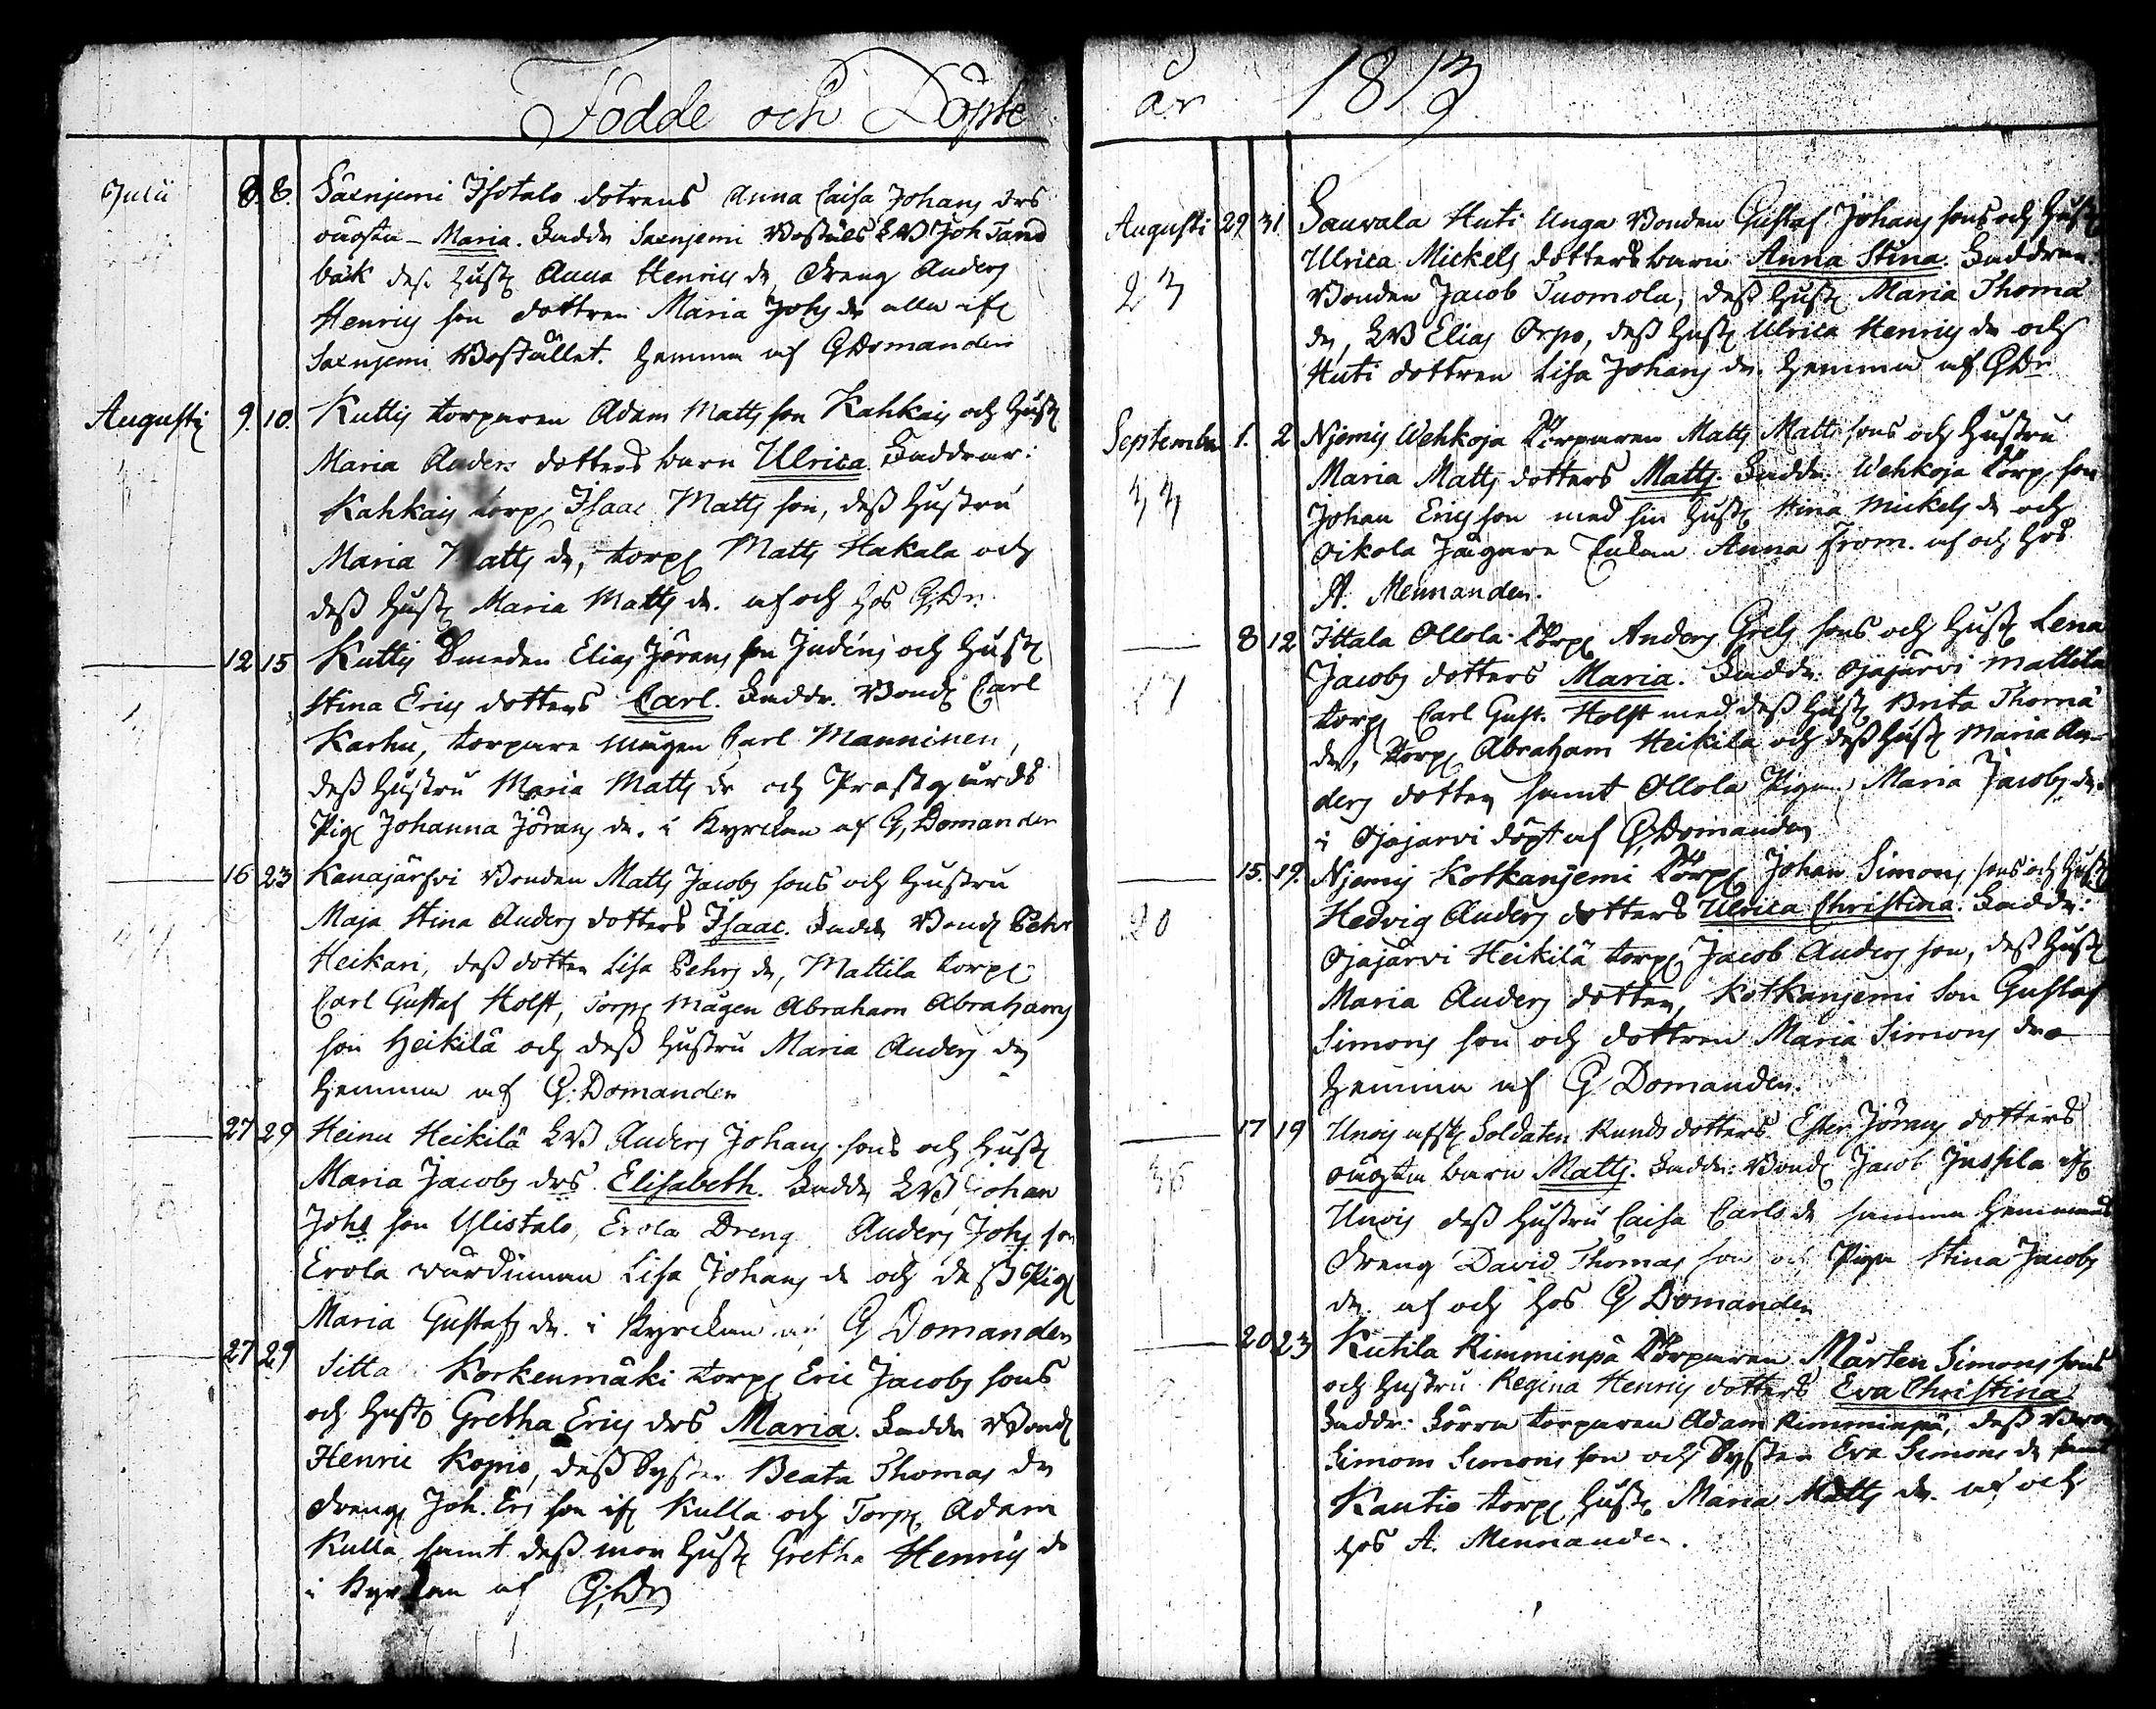 Födde och Döpte
Julii 8. 8. Säxnjemi Isotalo dotrens Anna Caisa Johans drs
oägta - Maria. Fadd. Saxnjemi Bostäls LB Joh Tand
bäk des. Hust. Anna Henrics dr, Dreng Anders
Henrics son dottren Maria Johs dr alla if.
Saxnjemi Bostället. hemma af G Domander
Augusti 9. 10. Kuttis torparen Adam Matts son Kahkais och Hust.
Maria Anders dotters barn Ulrica Faddrar:
Kahkais torp. Isaac Matts son, dess Hustru
Maria Matts dr, torp. Matts Hakala och
dess Hust. Maria Matts dr. af och hos G. Dr.
12 15 Kuttis Smeden Elias Jörans son och Hust.
Stina Erics dotters Carl. Faddr. Bond. Carl
Karhu, torpare mågen Carl Manninen,
dess Hustru Maria Matts dr och Prästgårds
Pig. Johanna Jörans dr. i Kyrckan af G. Domander
16 23 Kanajärfvi Bonden Matts Jacobs sons och Hustru
Maja Stina Anders dotters Isaac. Fadd. Bond. Pehr
Heikari, dess dotter Lisa Pehrs dr, Mattila torp.
Carl Gustaf Holst, Torp. mågen Abraham Abrahams
son Heikilä och dess Hustru Maria Anders dr
hemma af G. Domander
27 29 Heinu Heikilä LB Anders Johans sons och Hust.
Maria Jacobs drs Elisabeth. Fadd. LB Johan
Johs son Ylistalo, Erola Dreng Anders Johs son
Erola värdinnan Lisa Johans dr och dess Pig.
Maria Gustafs dr. i Kyrckan af G Domander
27 29 Sitta Korkenmäki torp. Eric Jacobs sons
och Hust. Gretha Erics drs Maria. Fadd. Bond.
Henric Kopio, dess Syster Beata Thomas dr
dreng. Joh. Ers son if. Kulla och Torp. Adam
Kulla samt dess mor Hust. Gretha Henrics dr
i Kyrckan af G. Dr
år 1813
Augusti 29 31 Sauvala Huti Unga Bonden Gustaf Johans sons och Hust.
23 Ulrica Mickels dotters barn Anna Stina. Faddrar.
Bonden Jacob Tuomola, dess Hust. Maria Thoma
dr, LB Elias Orpo, dess Hust. Ulrica Henrics dr och
Huti dottren Lisa Johans dr. hemma af G Dr
September 1. 2 Njemis Wehkoja Torparen Matts Matts sons och Hustru
Maria Matts dotters Matts. Faddr. Wehkoja Torp. son
Johan Erics son med sin Hust. Stina Mickels dr och
Oikola Jägare Enkan Anna From. af och hos
A. Mennander.
8 12 Ittala Ollola Torp. Anders Grels sons och Hust. Lena
Jacobs dotters Maria. Faddr. Ojajärvi Mattila
torp. Carl Gust. Holst med dess Hust. Brita Thoma
dr, Torp. Abraham Heikilä och dess Hust. Maria An
ders dotter samt Ollola Pigan Maria Jacobs dr.
i Ojajarvi döpt af G. Domander
15. 19. Njemis Kotkanjemi Torp. Johan Simons sons och Hust.
20 Hedvig Anders dotters Ulrica Christina. Faddr:
Ojajärvi Heikilä torp. Jacob Anders son, dess Hust.
Maria Anders dotter, Kotkanjemi Son Gustaf
Simons son och dottren Maria Simons dr
hemma af G Domander.
17 19 afsk. Soldaten Runds dotters Ester Jörans dotters
36 oägta barn Matts. Faddr: Bond. Jacob Jussila if.
dess Hustru Caisa Carls dr samma hemmans
dreng David Thomas son och Pigan Stina Jacobs
dr. af och hos G Domander
20 23 Kutila Rimminpä Torparen Mårten Simons sons
och Hustru Regina Henrics dotters Eva Christina
Faddr: Förra torparen Adam Rimminpä, dess Bror
Simon Simons son och Syster Eva Simons dr samt
Kautio torp. Hust. Maria Matts dr. af och
hos A. Mennander.